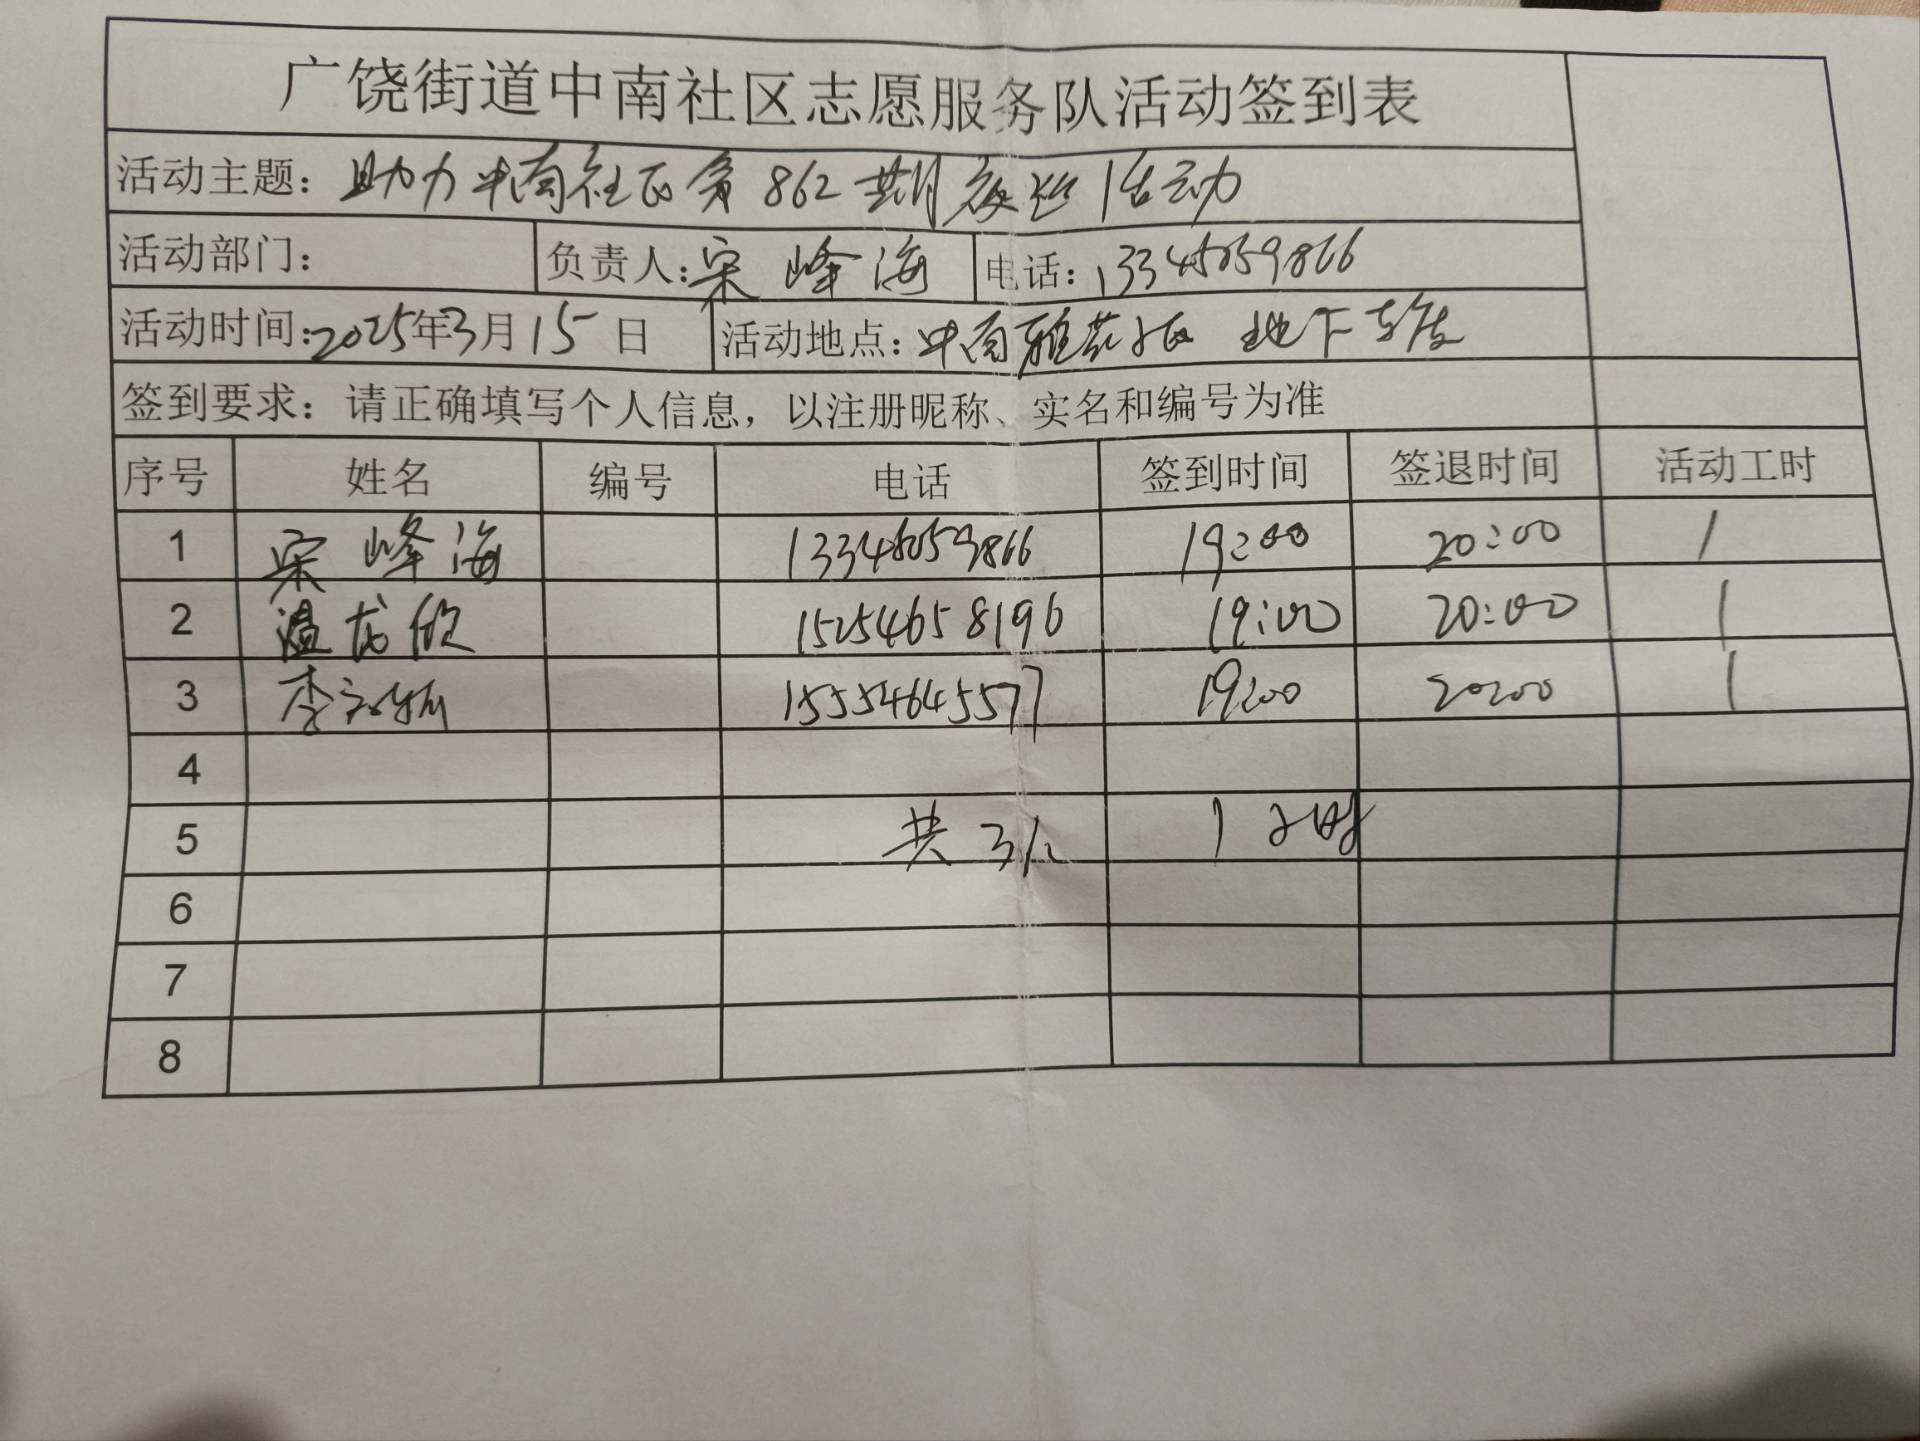 广饶街道中南社区志愿服务队活动签到表
活动主题：助力中南社区第862期夜巡活动
活动部门： 负责人：宋峰海 电话：13345059866
活动时间：2025年3月15日 活动地点：中南雅苑小区 地下车库
签到要求：请正确填写个人信息，以注册昵称、实名和编号为准
序号 姓名 编号 电话 签到时间 签退时间 活动工时
1 宋峰海 13345059866 19:00 20:00 1
2 温龙欣 15254658196 19:00 20:00 1
3 李 15554645577 19:00 20:00 1
4
5 共3人 1小时
6
7
8